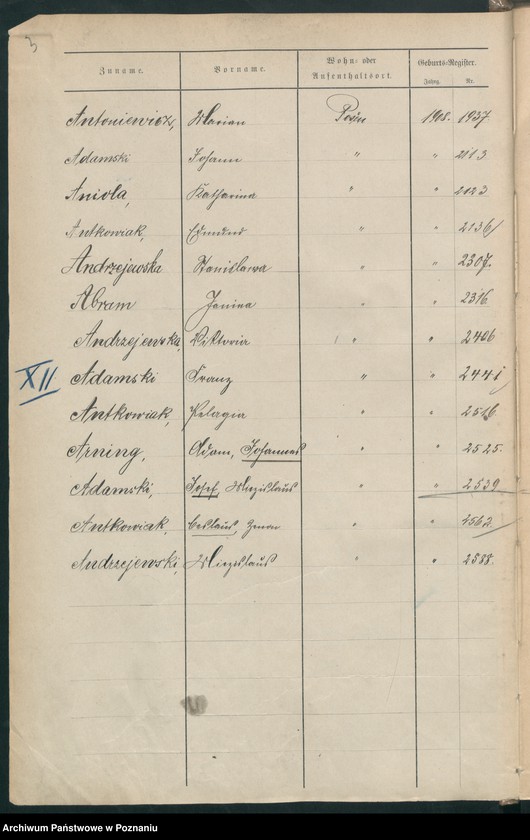 3
Zuname. Vorname. Wohn- oder Aufenthaltsort. Geburts-Register.
Jahrg. Nr.
Antoniewicz, Marian Posen 1908. 1937
Adamski Johann " " 2113
Aniola, Katharina " " 2123
Antkowiak, Edmund " " 2136
Andrzejewska Stanislawa " " 2307.
Abram Janina " " 2316
Andrzejewska, Viktoria " " 2406
XII Adamski Franz " " 2441
Antkowiak, Pelagia " " 2516
Arning, Adam, Johannes " " 2525.
Adamski, Josef, Miezislaus " " 2539
Antkowiak, Ceslaus, " " 2562
Andrzejewski, Miezislaus " " 2588.
Archiwum Państwowe w Poznaniu